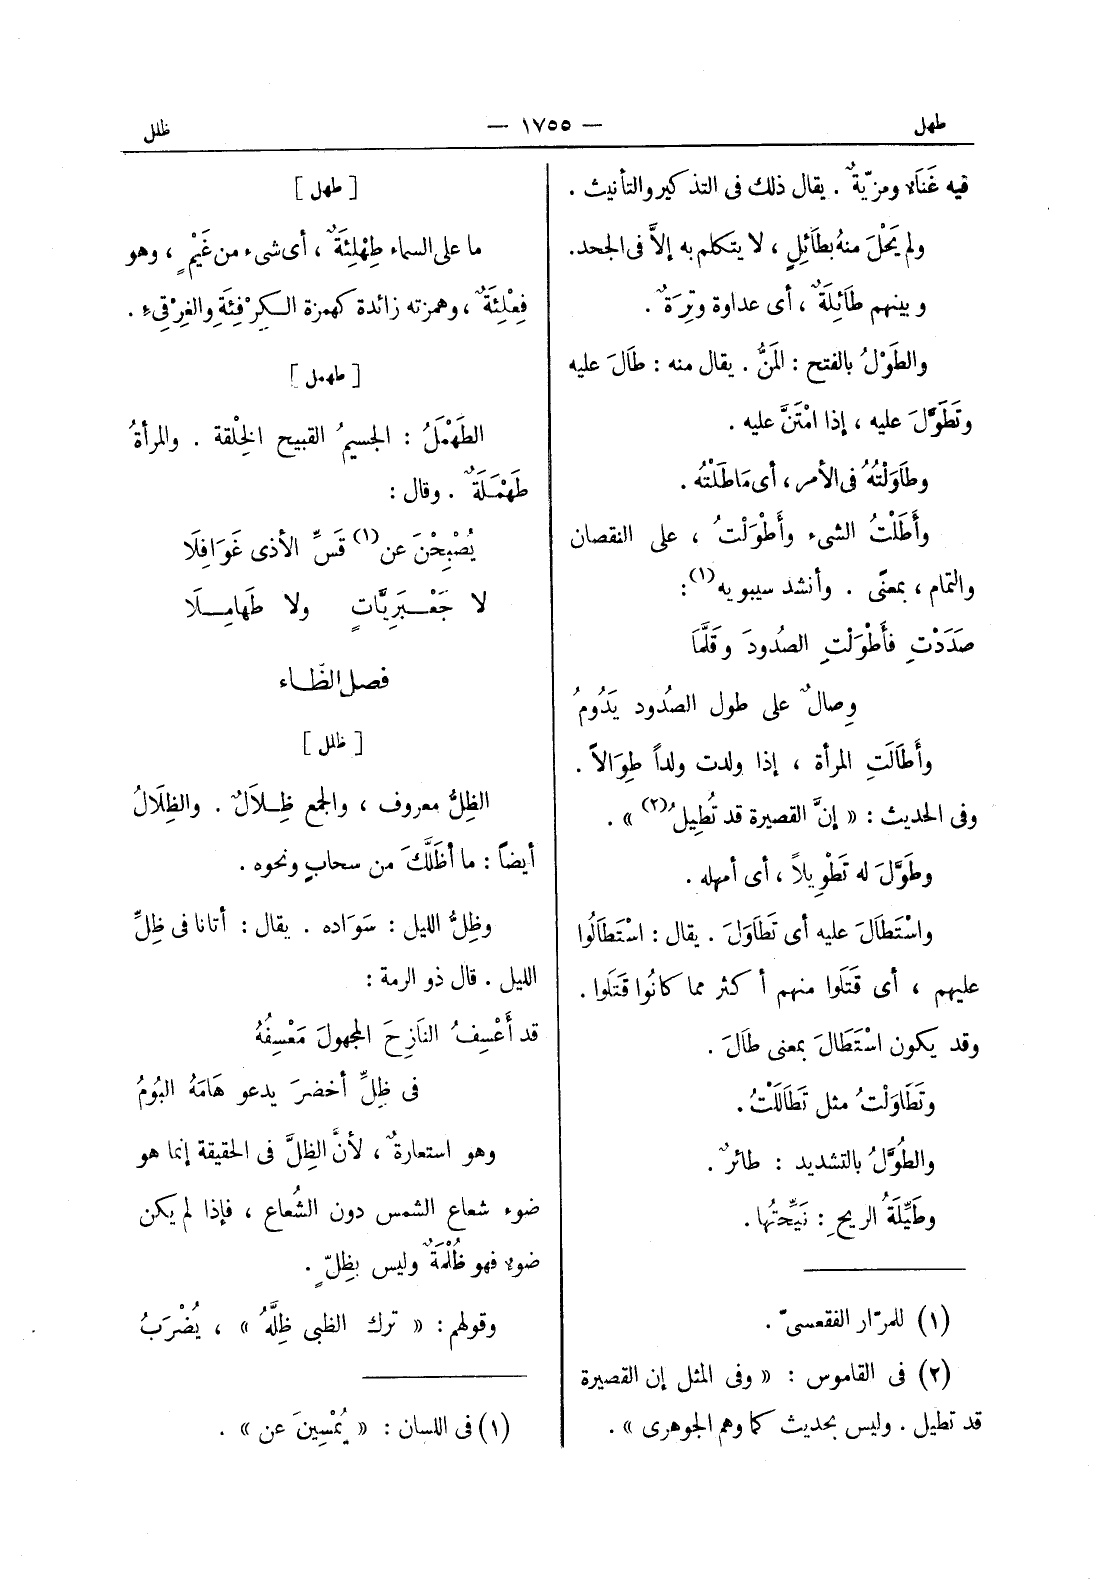 طهل
— ١٧٥٥ —
ظلل
فيه غَنَاءٌ ومزيّةٌ . يقال ذلك فى التذكير والتأنيث .
ولم يَحْلَ منه بطَائِلٍ ، لا يتكلم به إلاَّ فى الجحد.
وبينهم طَائِلَةٌ ، أى عداوة وتِرَةٌ .
والطَوْلُ بالفتح : المَنُّ . يقال منه : طَالَ عليه
وتَطَوَّلَ عليه ، إذا امْتَنَّ عليه .
وطَاوَلْتُهُ فى الأمر ، أى مَاطَلْتُه .
وأَطَلْتُ الشىء وأَطْوَلْتُ ، على النقصان
والتمام ، بمعنًى . وأنشد سيبويه(١):
صَدَدْتِ فأَطْوَلْتِ الصُدودَ وقَلَّمَا
وِصالٌ على طول الصُدود يَدُومُ
وأَطَالَتِ المرأة ، إذا ولدت ولداً طِوَالاً .
وفى الحديث : « إنَّ القصيرة قد تُطِيلُ(٢) » .
وطَوَّلَ له تَطْوِيلاً ، أى أمهله .
واسْتَطَالَ عليه أى تَطَاوَلَ . يقال : اسْتَطَالُوا
عليهم ، أى قَتَلوا منهم أكثر مما كانُوا قَتَلوا .
وقد يكون اسْتَطَالَ بمعنى طَالَ .
وتَطَاوَلْتُ مثل تَطَالَلْتُ .
والطُوَّلُ بالتشديد : طائرٌ .
وطَيِّلَةُ الريحِ : نَيِّحتُها .
(١) للمرّار الفقعسىّ .
(٢) فى القاموس : « وفى المثل إن القصيرة
قد تطيل . وليس بحديث كما وهم الجوهرى » .
[ طهل ]
ما على السماء طِهْلِئَةٌ ، أى شىء من غَيْمٍ ، وهو
فِعْلِئَةٌ ، وهمزته زائدة كهمزة الكِرْفِئَةِ والغِرْقِىءِ .
[ طهمل ]
الطَهْمَلُ : الجسيمُ القبيح الخِلْقة . والمرأةُ
طَهْمَلَةٌ . وقال :
يُصْبِحْنَ عن(١) قَسِّ الأذى غَوَافِلَا
لا جَعْبَرِيَّاتٍ ولا طَهامِلَا
فصل الظَّاء
[ ظلل ]
الظِلُّ معروف ، والجمع ظِلاَلٌ . والظِلَالُ
أيضاً : ما أظَلَّكَ من سحابٍ ونحوه .
وظِلُّ الليل : سَوَاده . يقال : أتانا فى ظِلِّ
الليل . قال ذو الرمة :
قد أَعْسِفُ النَازِحَ المجهولَ مَعْسِفُهُ
فى ظِلِّ أخضرَ يدعو هَامَهُ البُومُ
وهو استعارةٌ ، لأنَّ الظِلَّ فى الحقيقة إنما هو
ضوء شعاع الشمس دون الشُعاع ، فإذا لم يكن
ضوءٌ فهو ظُلْمَةٌ وليس بظِلٍّ .
وقولهم : « ترك الظبى ظِلَّهُ » ، يُضْرَبُ
(١) فى اللسان : « يُمْسِينَ عن » .